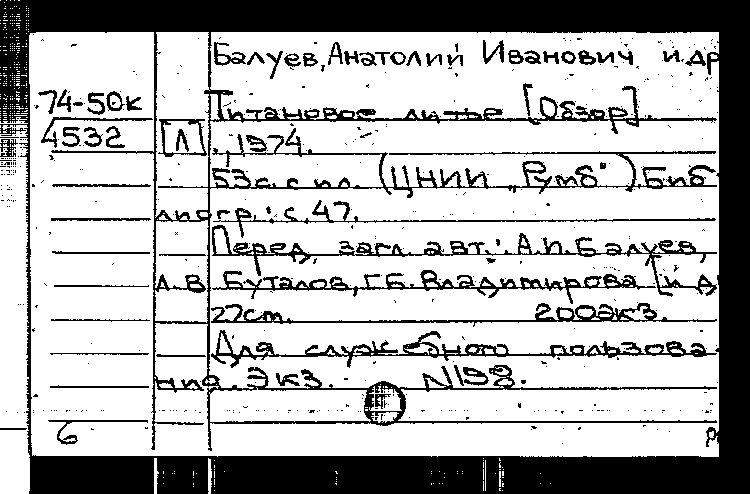 Балуев, Анатолий Иванович и др
74-50к
4532
Титановое литье [Обзор].
[Л]., 1974.
53с. с ил. (ЦНИИ „Румб"). Биб
лиогр.: с. 47.
Перед загл. авт.: А.И. Балуев,
Л.В. Буталов, Г.Б. Владимирова [и д
27см. 200экз.
Для служебного пользова-
ния. Экз. №198.
6